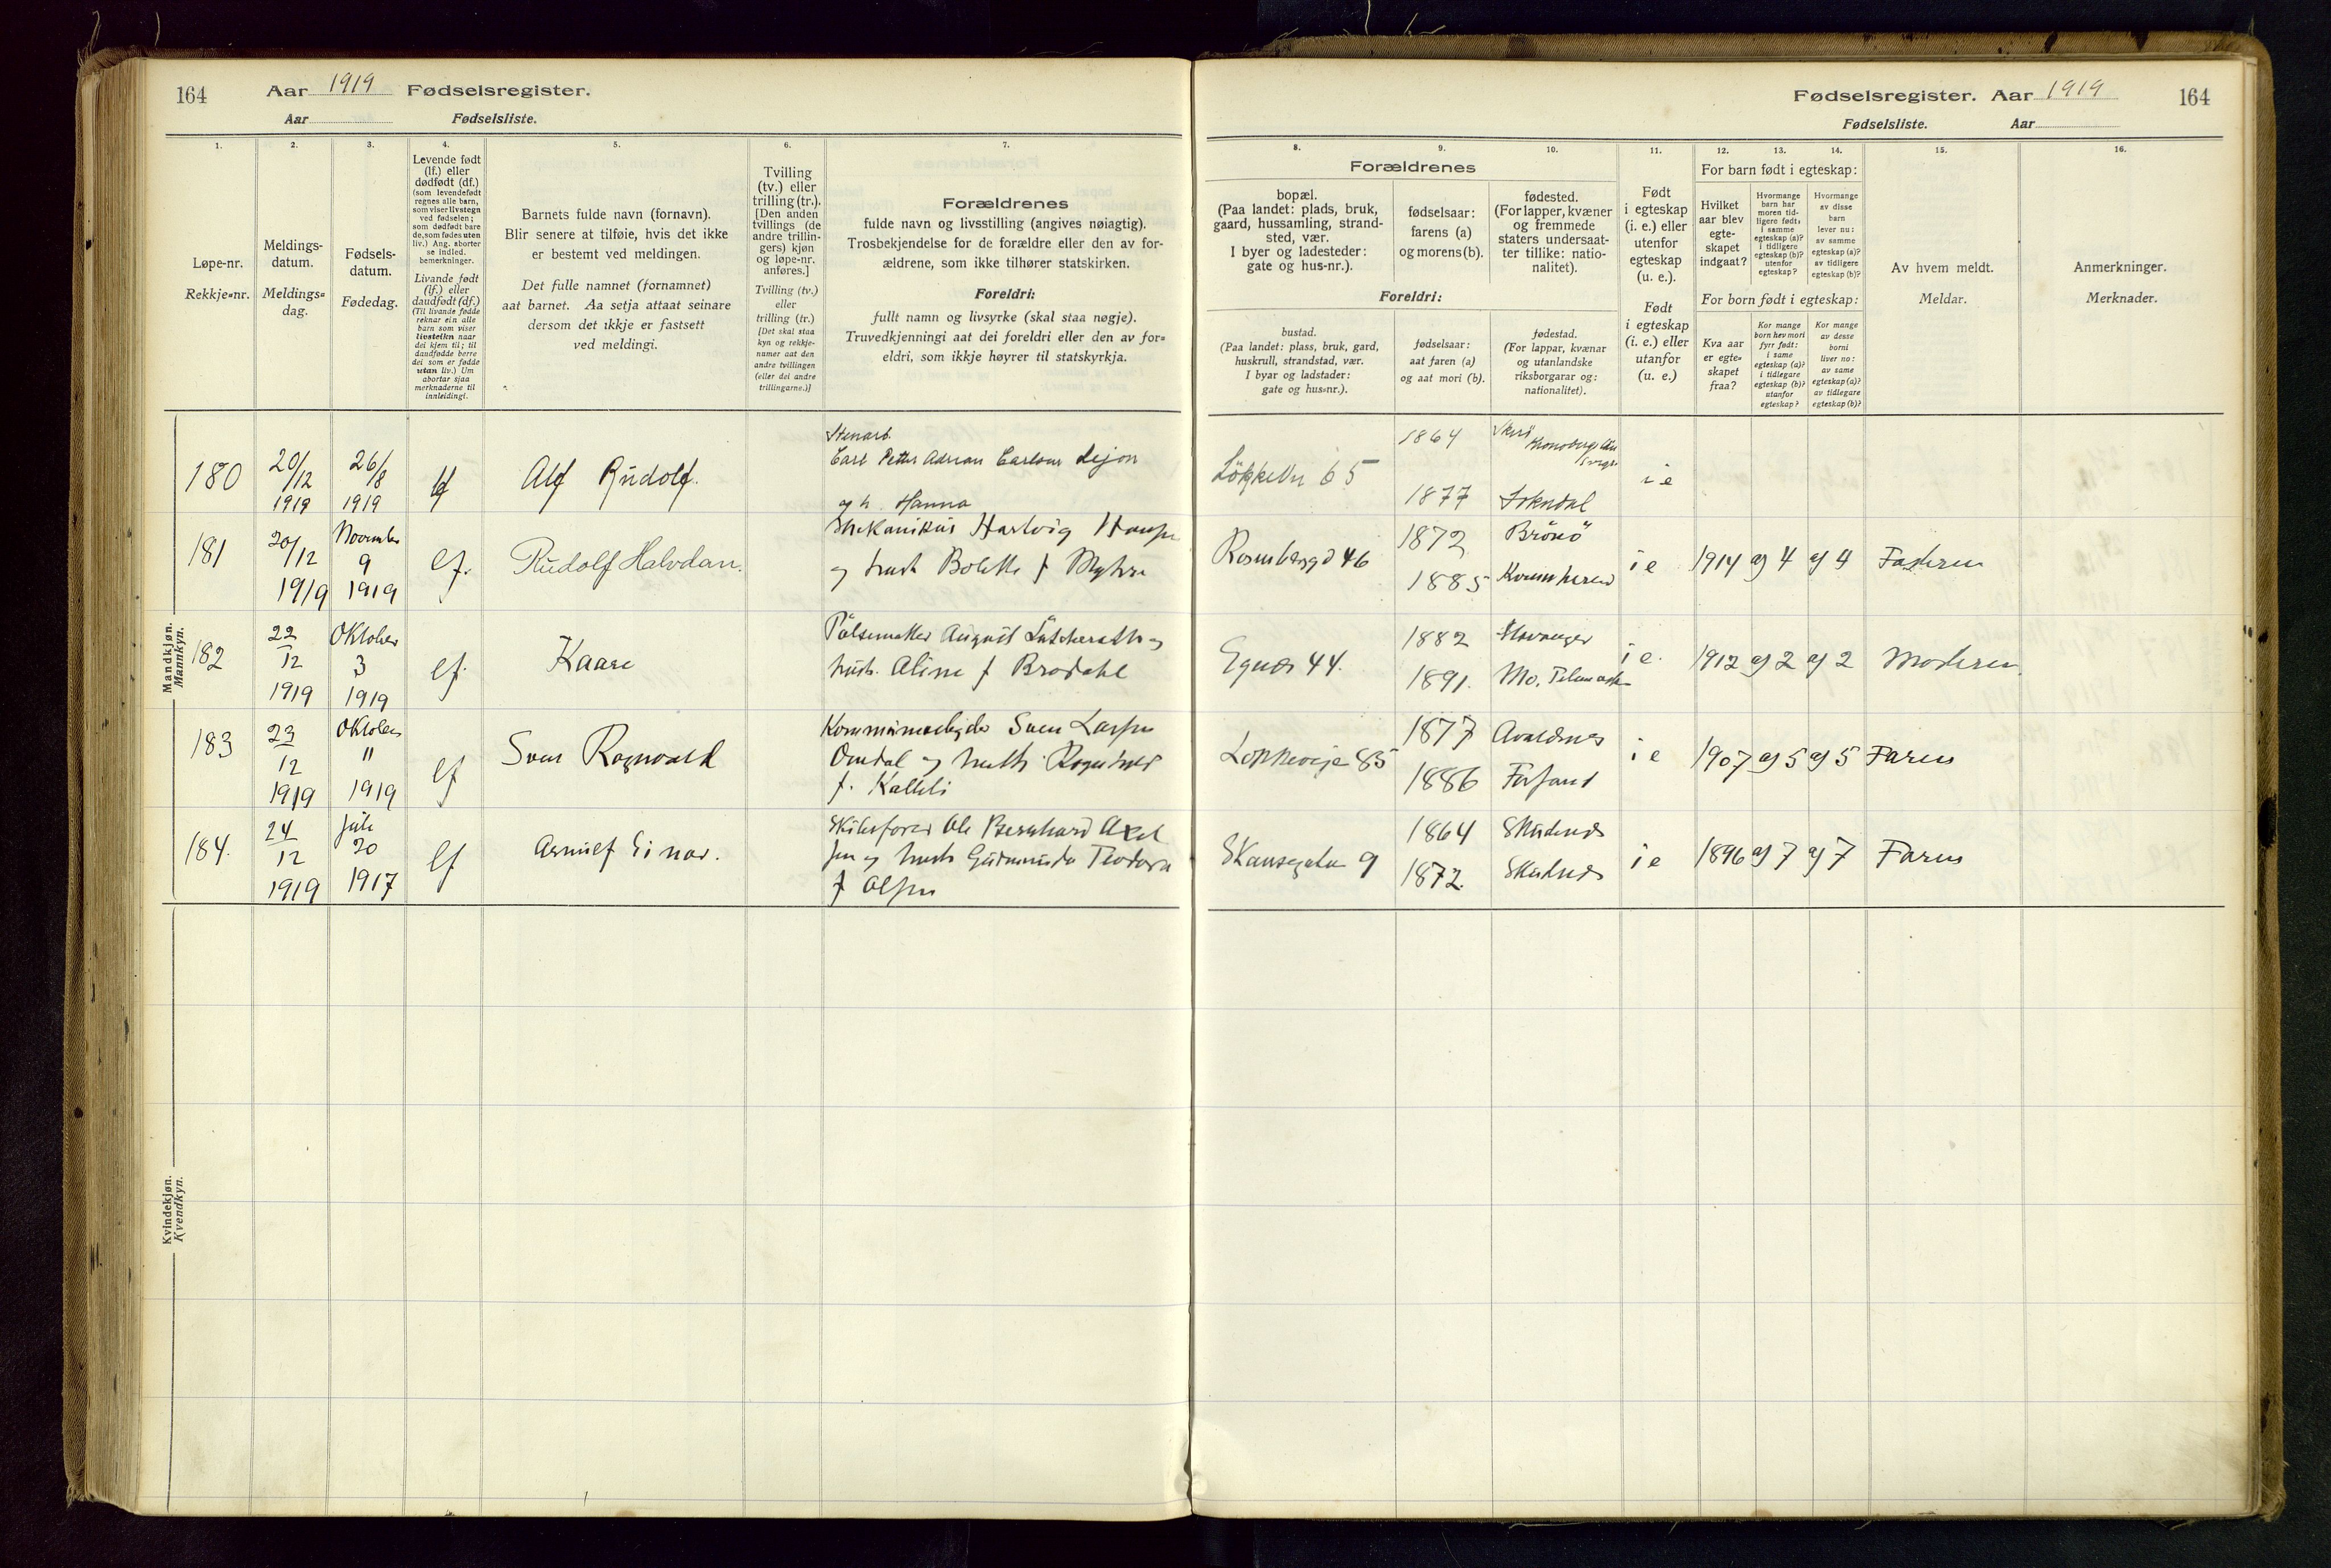 164
Aar 1919 Fødselsregister.
Aar Fødselsliste.
1.
Løpe-nr.
Rekkje-nr.
2.
Meldings-
datum.
Meldings-
dag.
3.
Fødsels-
datum.
Fødedag.
4.
Levende født
(lf.) eller
dødfødt (df.)
(som levendefødt
regnes alle barn,
som viser livstegn
ved fødselen;
som dødfødt bare
de, som fødes uten
liv.) Ang. aborter
se indled.
bemerkninger.
Livande født
(lf.) eller
daudfødt (df.)
(Til livande fødde
reknar ein alle
barn som viser
livsteikn naar
dei kjem til; til
daudfødde berre
dei som er fødde
utan liv.) Um
abortar sjaa
merknaderne til
innleidingi.
5.
Barnets fulde navn (fornavn).
Blir senere at tilføie, hvis det ikke
er bestemt ved meldingen.
Det fulle namnet (fornamnet)
aat barnet. Aa setja attaat seinare
dersom det ikkje er fastsett
ved meldingi.
6.
Tvilling
(tv.) eller
trilling (tr.).
[Den anden
tvillings (de
andre trillin-
gers) kjøn
og løpe-nr.
anføres.]
Tvilling (tv.)
eller
trilling (tr.)
[Det skal staa
kyn og rekkje-
numer aat den
andre tvillingen
(eller dei andre
trillingarne.)]
7.
Forældrenes
fulde navn og livsstilling (angives nøiagtig).
Trosbekjendelse for de forældre eller den av for-
ældrene, som ikke tilhører statskirken.
Foreldri:
fullt namn og livsyrke (skal staa nøgje).
Truvedkjenningi aat dei foreldri eller den av for-
eldri, som ikkje høyrer til statskyrkja.
Mandkjøn.
Mannkyn.
180
20/12
1919
26/8
1919
lf
Alf Rudolf.
Stenarb.
Carl Petter Adrian Carlson Lejon
og h. Hanna
181
20/12
1919
November
9
1919
lf.
Rudolf Halvdan.
Mekanikus Hartvig Hansen
og hust Bolette f Myhre
182
22
12
1919
Oktober
3
1919
lf.
Kaare
Pölsemaker August
hust. Aline f Brodahl
183
23
12
1919
Oktober
11
1919
lf
Sven Ragnvald
Kommunearbejder Sven Larsen
Omdal og hustr. Ragnhild
f.
184.
24
12
1919
Juli
20
1917
lf
Arnulf Einar.
Skibsfører Ole Bernhard Axel
sen og hust Gudmunda Teodora
f Olsen
Kvindekjøn.
Kvendkyn.
Fødselsregister. Aar 1919
164
Fødselsliste. Aar
8.
Forældrenes
bopæl.
(Paa landet: plads, bruk,
gaard, hussamling, strand-
sted, vær.
I byer og ladesteder:
gate og hus-nr.).
Foreldri:
bustad.
(Paa landet: plass, bruk, gard,
huskrull, strandstad, vær.
I byar og ladstader:
gate og hus-nr.).
9.
fødselsaar:
farens (a)
og morens (b).
fødselsaar:
aat faren (a)
og aat mori (b).
10.
fødested.
(For lapper, kvæner
og fremmede
staters undersaat-
ter tillike: natio-
nalitet).
fødestad.
(For lappar, kvænar
og utanlandske
riksborgarar og:
nationalitet).
11.
Født
i egteskap
(i. e.) eller
utenfor
egteskap
(u. e.).
Født
i egteskap
(i. e.) eller
utanfor
(u. e.)
12. 13. 14.
For barn født i egteskap:
Hvilket
aar blev
egte-
skapet
indgaat?
Hvormange
barn har
moren tid-
ligere født:
i samme
egteskap (a)?
i tidligere
egteskap (b)?
utenfor
egteskap?
Hvormange
av disse
barn
lever nu:
av samme
egteskap (a)?
av tidligere
egteskap (b)?
For born født i egteskap:
Kva aar
er egte-
skapet
fraa?
Kor mange
born hev mori
fyrr født:
i same
egteskap (a)?
i tidlegare
egteskap (b)?
utanfor
egteskap?
Kor mange
av desse
borni
liver no:
av same
egteskap (a)?
av tidlegare
egteskap (b)?
15.
Av hvem meldt.
Meldar.
16.
Anmerkninger.
Merknader.
65
1864
1877
Sokndal
i e
46
1872
Brönö
1885
Kvinnherred
i e
1914 a) 4 a) 4 Faderen
Egnæs 44.
1882
Stavanger
1891.
Mo. Telemarken
i e.
1912 a) 2 a) 2 Moderen
85
1877
Avaldsnes
1886
Forsand
i e
1907 a) 5 a) 5 Faren
Skansegaten 9
1864
Skudenes
1872.
Skudenes
i e
1896 a) 7 a) 7 Faren